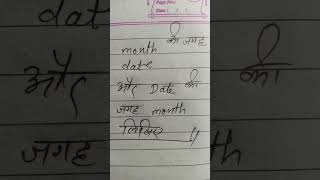 Page No.
Date
month की जगह
date
और Date की
जगह month
लिखिए